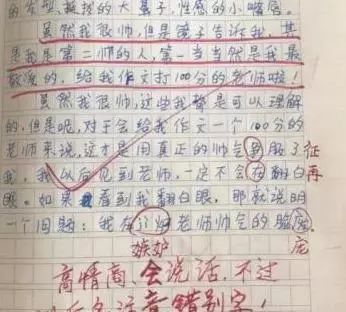 的发型，挺拔的大鼻子，性感的小嘴唇。
虽然我很帅，但是镜子告诉我，其
是我是第二帅的人，第一当当然是我最
敬爱的，给我作文打100分的老师啦！
虽然我很帅，这些我都是可以理解
的，但是呢，对于会给我作文一个100分的
老师来说，这才是用真正的帅气到脑了征
我，我以后见到老师，一定不会在翻白再
眼。如果看到我翻白眼，那就说明
一个问题：我在老师帅气的脸庞。
嫉妒 庞
高情商，会说话，不过
以后多注意错别字！